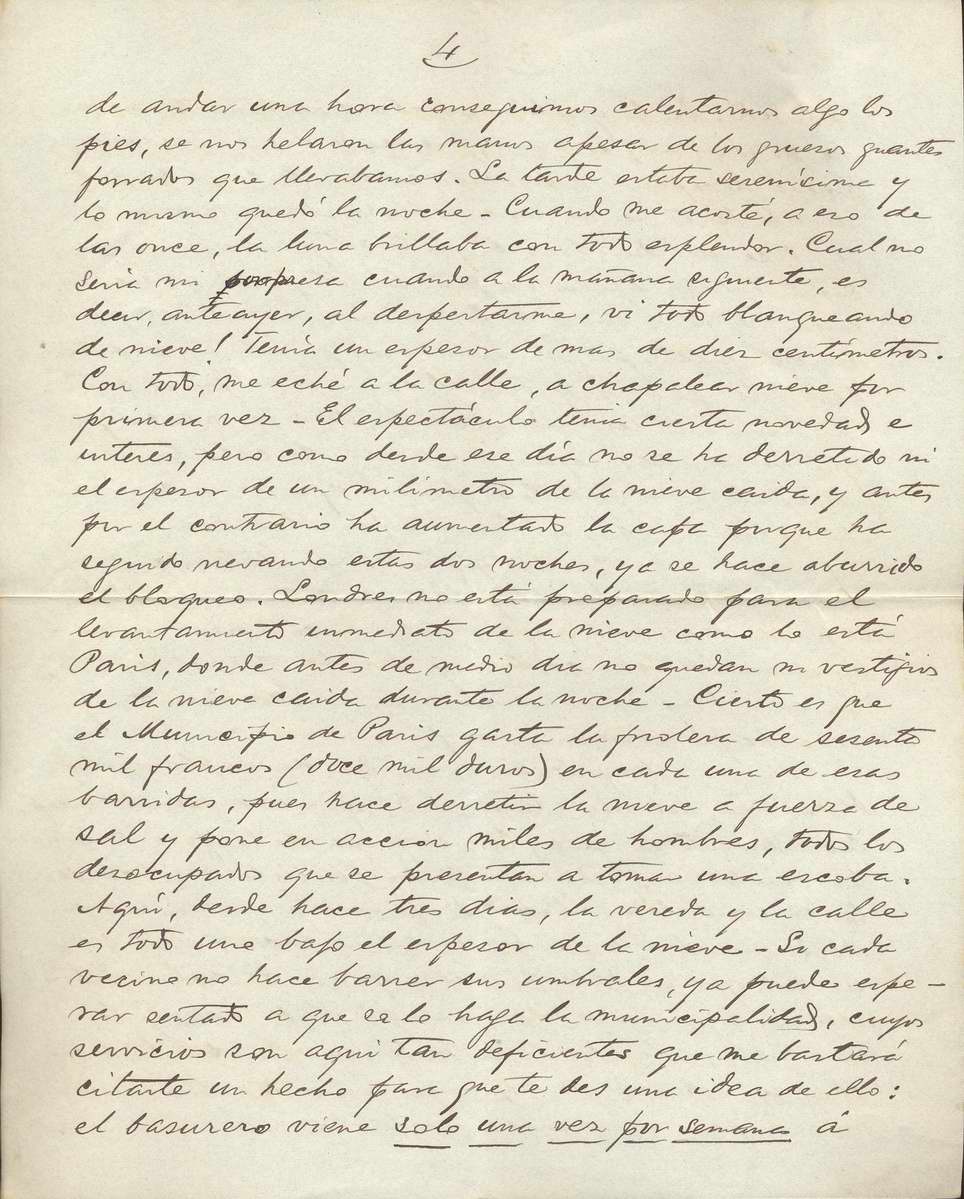 4
de andar una hora conseguimos calentarnos algo los
pies, se nos helaron las manos apesar de los gruesos guantes
forrados que llevabamos. La tarde estaba serenísima y
lo mismo quedó la noche - Cuando me acosté, a eso de
las once, la luna brillaba con todo esplendor. Cual no
seria mi sorpresa cuando a la mañana siguiente, es
decir, anteayer, al despertarme, vi todo blanqueando
de nieve! Tenía un espesor de mas de diez centímetros.
Con todo, me eché a la calle, a chapalear nieve por
primera vez - El espectáculo tenia cierta novedad e
interés, pero como desde ese día no se ha derretido ni
el espesor de un milimetro de la nieve caida, y antes
por el contrario ha aumentado la capa porque ha
seguido nevando estas dos noches, ya se hace aburrido
el bloqueo. Londres no está preparado para el
levantamiento inmediato de la nieve como lo está
Paris, donde antes de medio dia no quedan ni vestigios
de la nieve caida durante la noche - Cierto es que
el Municipio de Paris gasta la friolera de sesenta
mil francos (doce mil duros) en cada una de esas
barridas, pues hace derretir la nieve a fuerza de
sal y pone en accion miles de hombres, todos los
desocupados que se presentan a tomar una escoba.
Aquí, desde hace tres dias, la vereda y la calle
es todo uno bajo el espesor de la nieve - Si cada
vecino no hace barrer sus umbrales, ya puede espe-
rar sentado a que se lo haga la municipalidad, cuyos
servicios son aqui tan deficientes que me bastará
citarte un hecho para que te des una idea de ello:
el basurero viene solo una vez por semana á